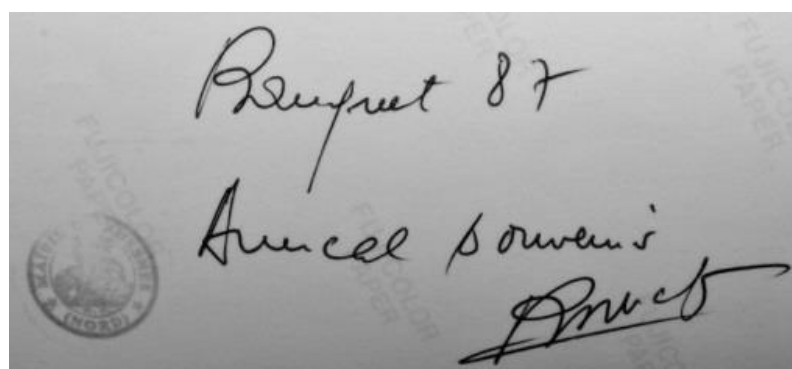 Banquet 87
Amical souvenir
FUJICOLOR
PAPER
FUJICOLOR
PAPER
MAIRIE
(NORD)